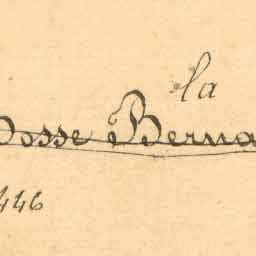 la
Fosse à Berna
446